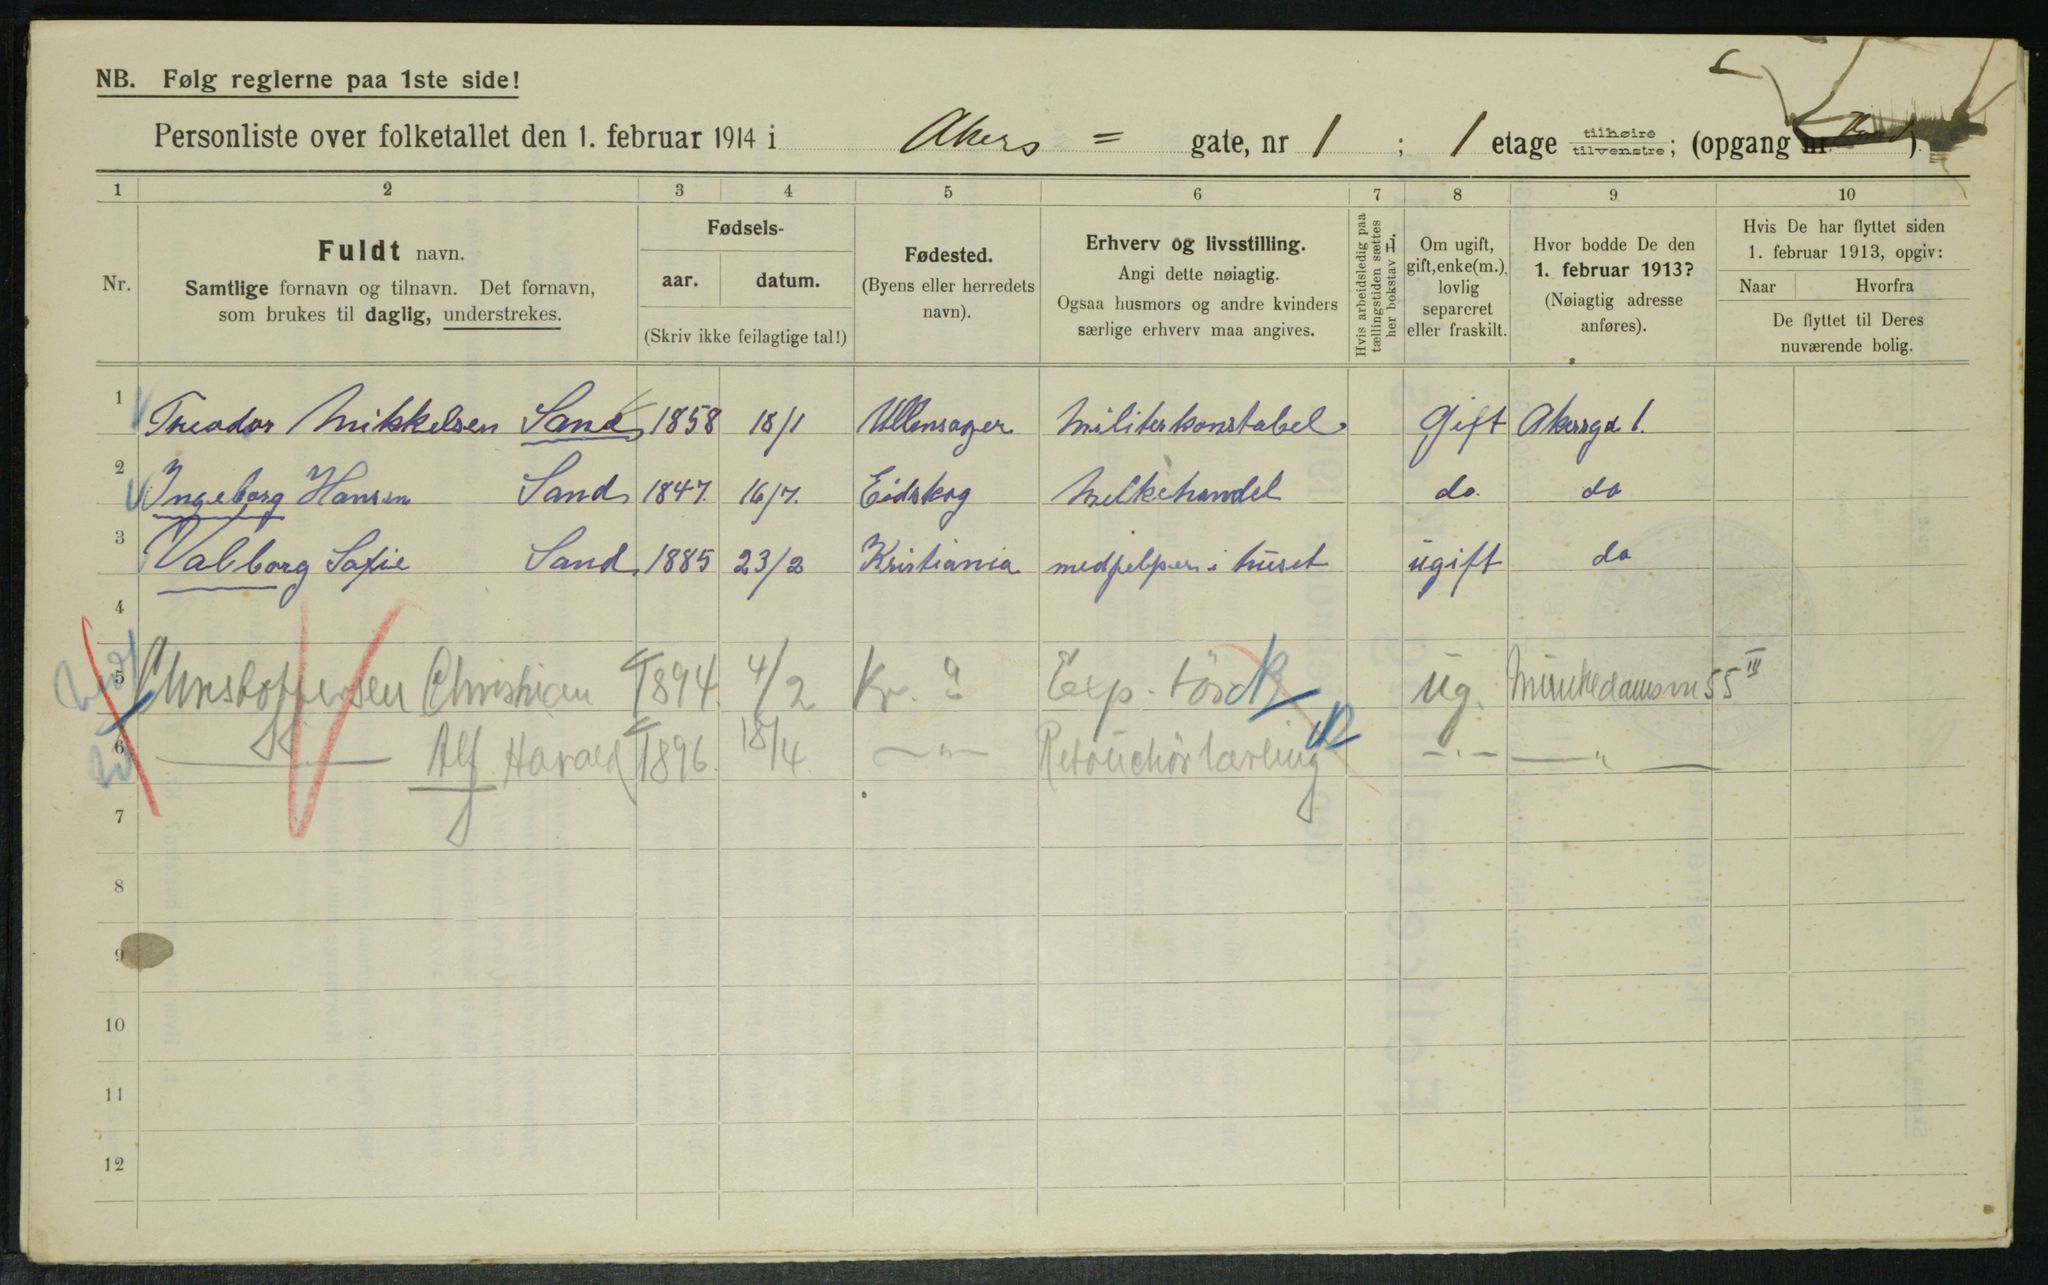 NB. Følg reglerne paa 1ste side!
Personliste over folketallet den 1. februar 1914 i Akers = gate, nr 1 ; 1 etage tilhøire tilvenstre; (opgang nr )
1 2 3 4 5 6 7 8 9 10
Nr.
Fuldt navn.
Samtlige fornavn og tilnavn. Det fornavn,
som brukes til daglig, understrekes.
Fødsels-
aar. datum.
(Skriv ikke feilagtige tal!)
Fødested.
(Byens eller herredets
navn).
Erhverv og livsstilling.
Angi dette nøiagtig.
Ogsaa husmors og andre kvinders
særlige erhverv maa angives.
Hvis arbeidsledig paa
tællingstiden sættes
her bokstav L.
Om ugift,
gift, enke(m.),
lovlig
separeret
eller fraskilt.
Hvor bodde De den
1. februar 1913?
(Nøiagtig adresse
anføres).
Hvis De har flyttet siden
1. februar 1913, opgiv:
Naar Hvorfra
De flyttet til Deres
nuværende bolig.
1 Theodor Mikkelsen Sand 1858 18/1 Ullensager Militerkonstabel Gift Akersgd 1.
2 Ingeborg Hansen Sand 1847. 16/7. Eidskog Melkehandel do. do
3 Valborg Sofie Sand 1885 23/2 Kristiania medhjelper i huset ugift do
4
5 Christoffersen Christian 1894. 4/2 Kr. a Exp. ug. Munkedamsvn 55 III
6 — " — Alf Harald 1896. 18/4 — " — Retouchörlærling — " — — " —
7
8
9
10
11
12